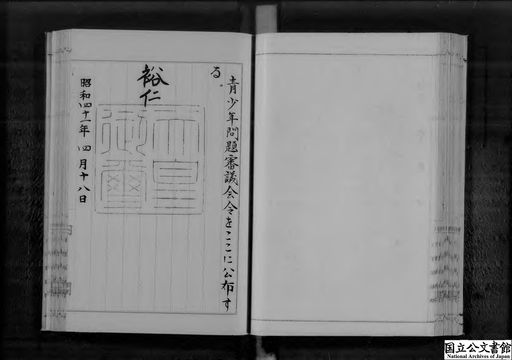 青少年問題審議会令をここに公布す
る。
裕仁
天皇
御璽
昭和四十一年四月十八日
国立公文書館
National Archives of Japan